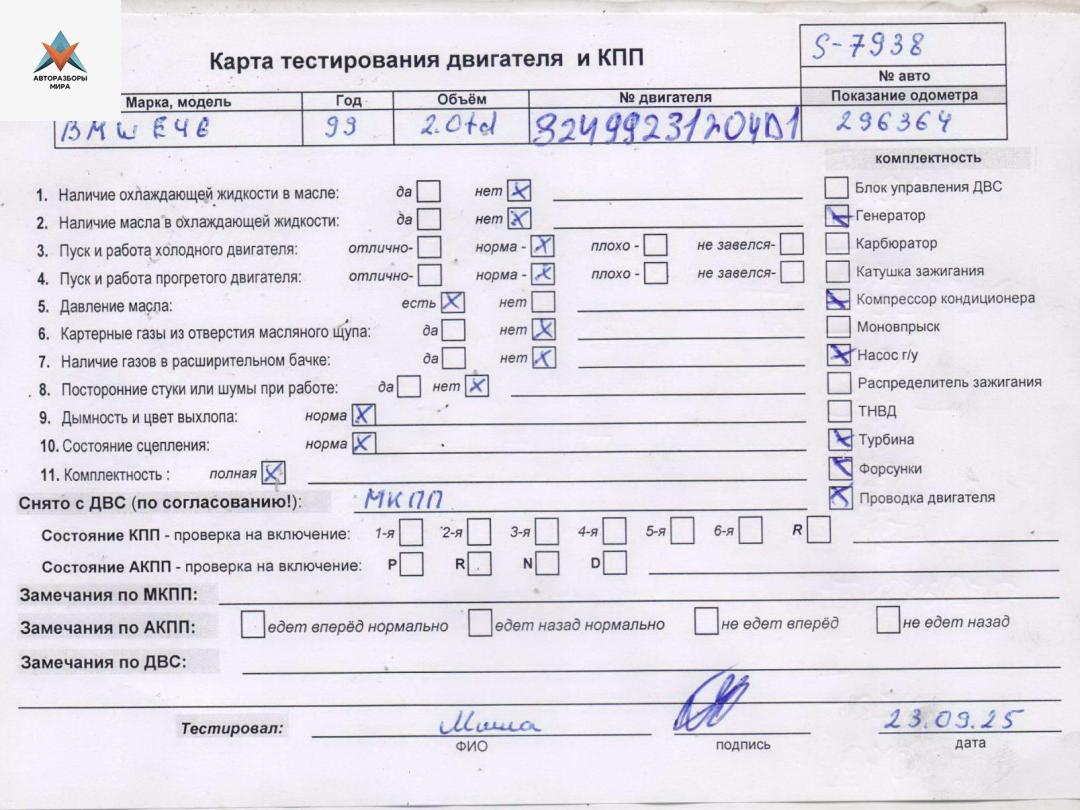 АВТОРАЗБОРЫ
МИРА
Карта тестирования двигателя и КПП
S-7938
№ авто
Марка, модель Год Объём № двигателя Показание одометра
BMW E46 99 2.0td 296364
комплектность
1. Наличие охлаждающей жидкости в масле: да нет
Блок управления ДВС
2. Наличие масла в охлаждающей жидкости: да нет
Генератор
3. Пуск и работа холодного двигателя: отлично- норма - плохо - не завелся-
Карбюратор
4. Пуск и работа прогретого двигателя: отлично- норма - плохо - не завелся-
Катушка зажигания
5. Давление масла: есть нет
Компрессор кондиционера
6. Картерные газы из отверстия масляного щупа: да нет
Моновпрыск
7. Наличие газов в расширительном бачке: да нет
Насос г/у
8. Посторонние стуки или шумы при работе: да нет
Распределитель зажигания
9. Дымность и цвет выхлопа: норма
ТНВД
10. Состояние сцепления: норма
Турбина
11. Комплектность : полная
Форсунки
Снято с ДВС (по согласованию!): МКПП
Проводка двигателя
Состояние КПП - проверка на включение: 1-я 2-я 3-я 4-я 5-я 6-я R
Состояние АКПП - проверка на включение: P R N D
Замечания по МКПП:
Замечания по АКПП: едет вперёд нормально едет назад нормально не едет вперёд не едет назад
Замечания по ДВС:
Тестировал: Миша 23.09.25
ФИО подпись дата